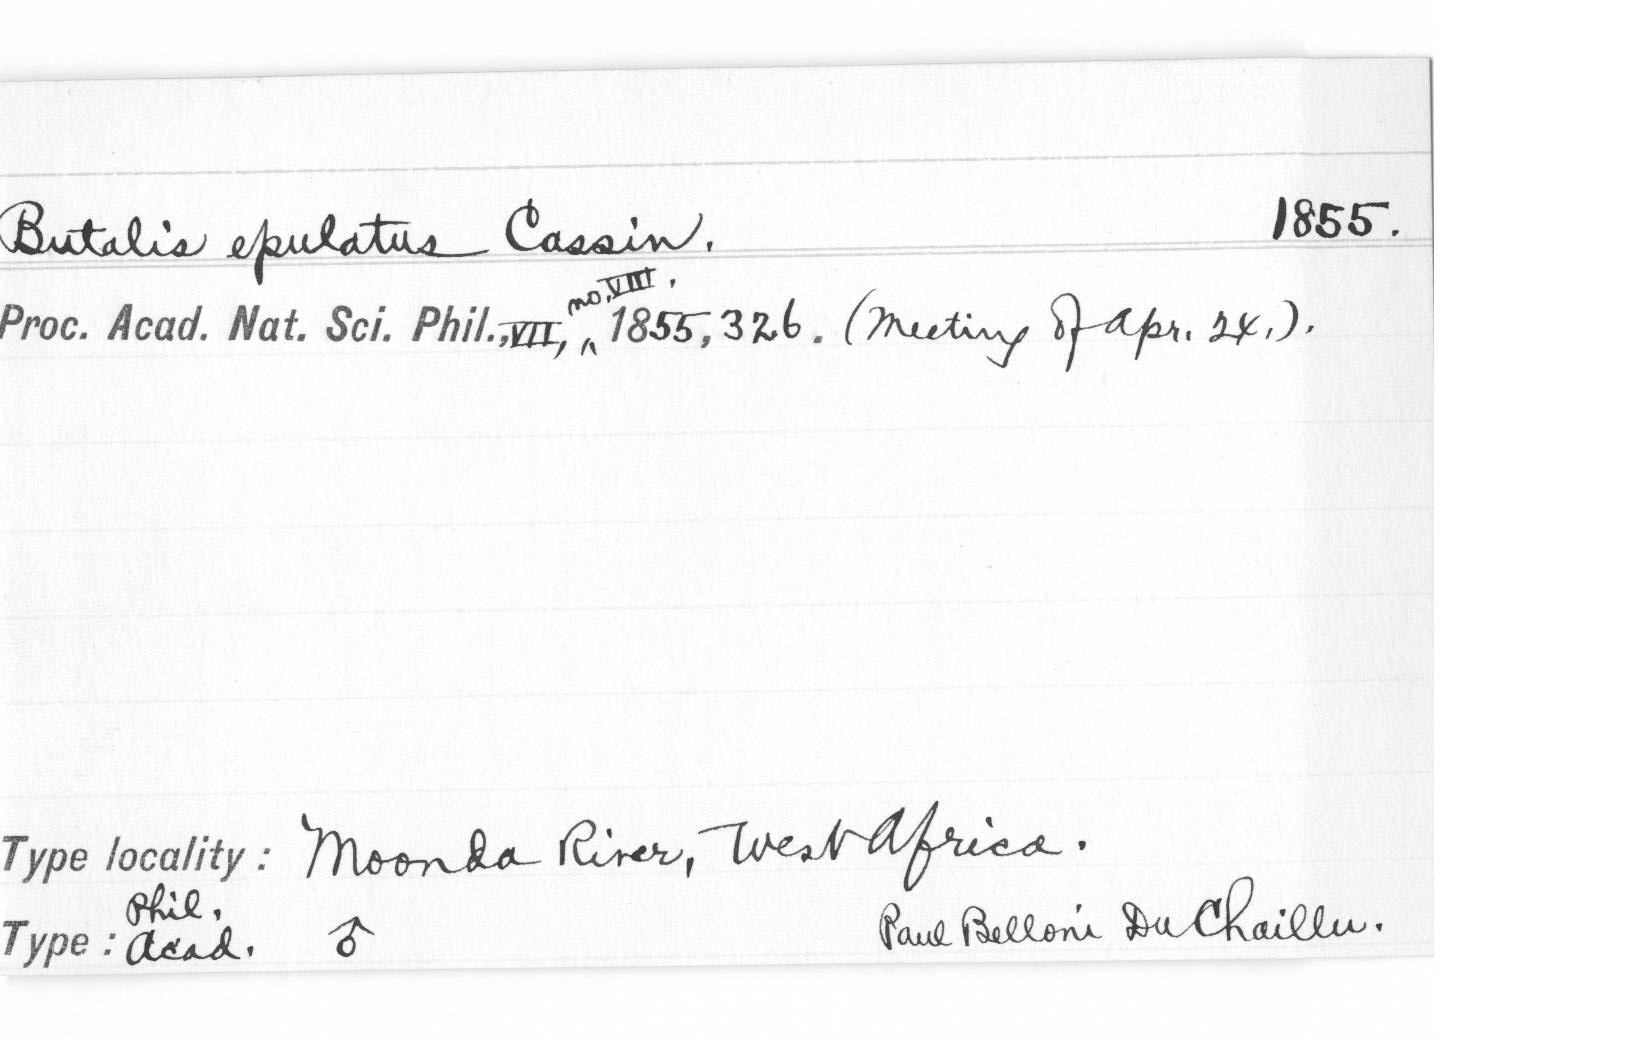 Butalis epulatus Cassin. 1855.
Proc. Acad. Nat. Sci. Phil., VII, no. VIII, 1855, 326. (Meeting of Apr. 24.).
Type locality: Moonda River, West Africa.
Type: Phil. Acad. ♂ Paul Belloni Du Chaillu.